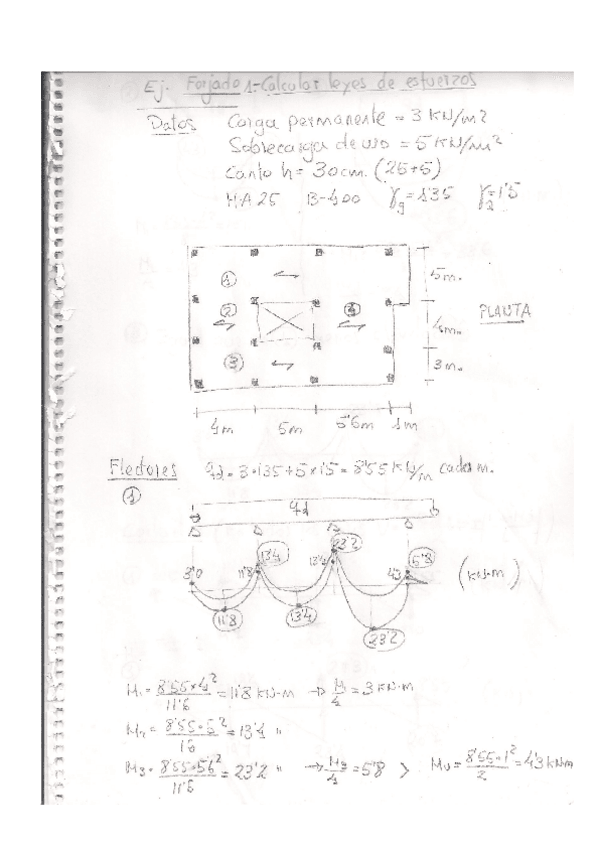 Ej. Forjado 1-Calcular leyes de esfuerzos
Datos Carga permanente = 3 KN/m2
Sobrecarga de uso = 5 KN/m²
Canto h = 30 cm. (25+5)
HA 25 B-400 γg = 1'35 γq = 1'5
1
5m.
2
4
4m.
PLANTA
3
3m.
4m 5m 5'6m 1m
Flectores qd = 3·1'35+5×1'5 = 8'55 KN/m cada m.
1
qd
13'4 23'2 5'8
3'0 11'8 13'4 4'3 (KN·m)
11'8 13'4
23'2
M1 = 8'55×4²/11'6 = 11'8 KN·m → M1/4 = 3 KN·m
M2 = 8'55·5²/16 = 13'4 "
M3 = 8'55·5'6²/11'6 = 23'2 " → M3/4 = 5'8 > MV = 8'55·1²/2 = 4'3 KNm